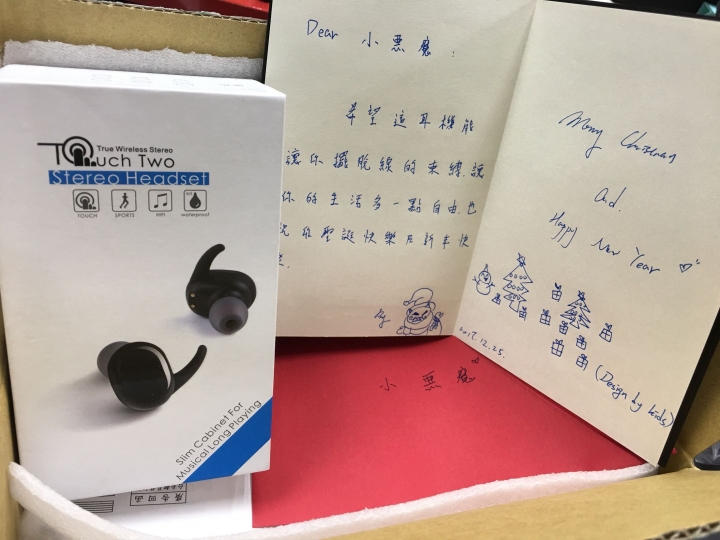 True Wireless Stereo
TOuch Two
Stereo Headset
TOUCH SPORTS HIFI waterproof
Slim Cabinet For
Musical Long Playing
Dear 小惡魔:
希望這耳機能
讓你擺脫線的束縛,讓
你的生活多一點自由.也
祝你聖誕快樂及新年快
樂.
By
Merry Christmas
And.
Happy New Year ♡
2017.12.25.
(Design by kids)
小惡魔